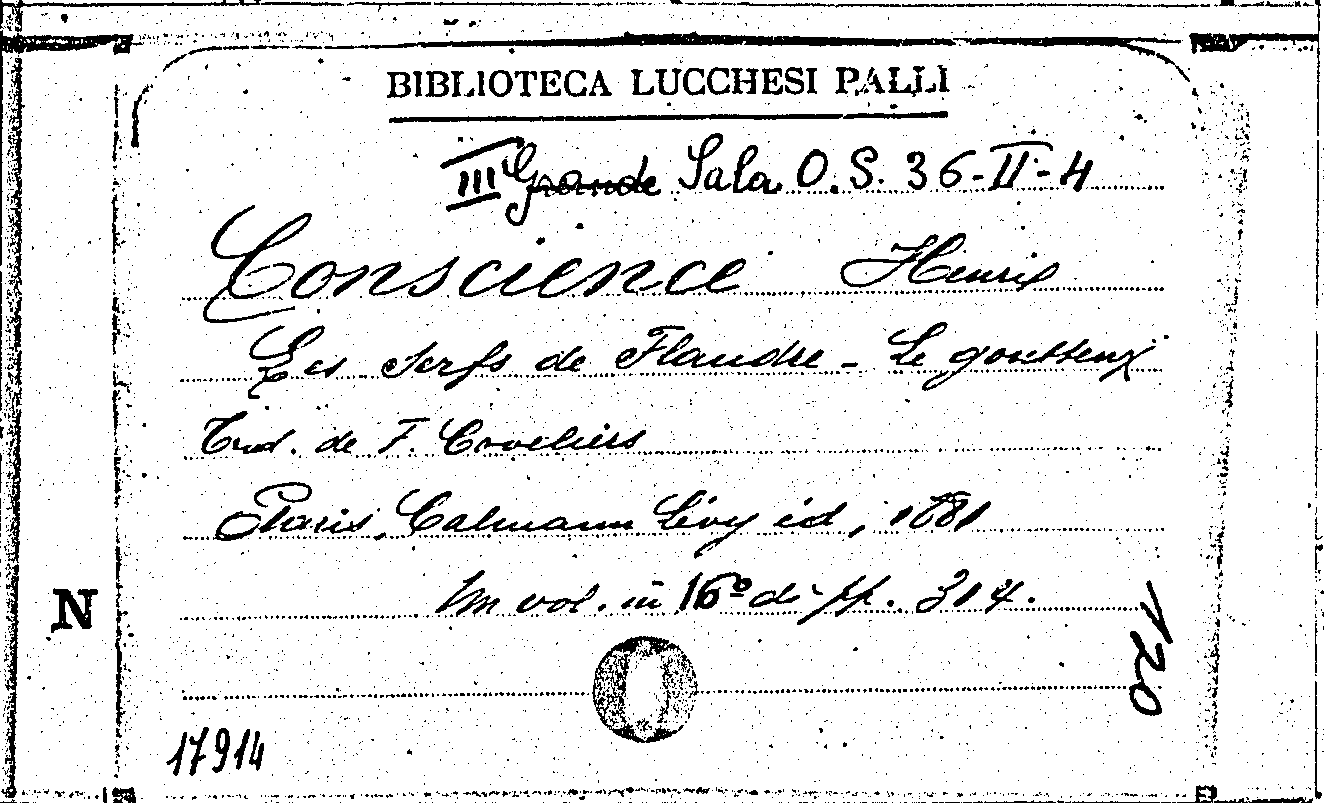 BIBLIOTECA LUCCHESI PALLI
III Grande Sala O.S. 36-II-4
Conscience Henri
Les Serfs de Flandre - Le goutteux
Trad. de F. Coveliers
Paris, Calmann Lévy éd, 1881
Un vol. in 16º di pp. 314.
N
120
17914